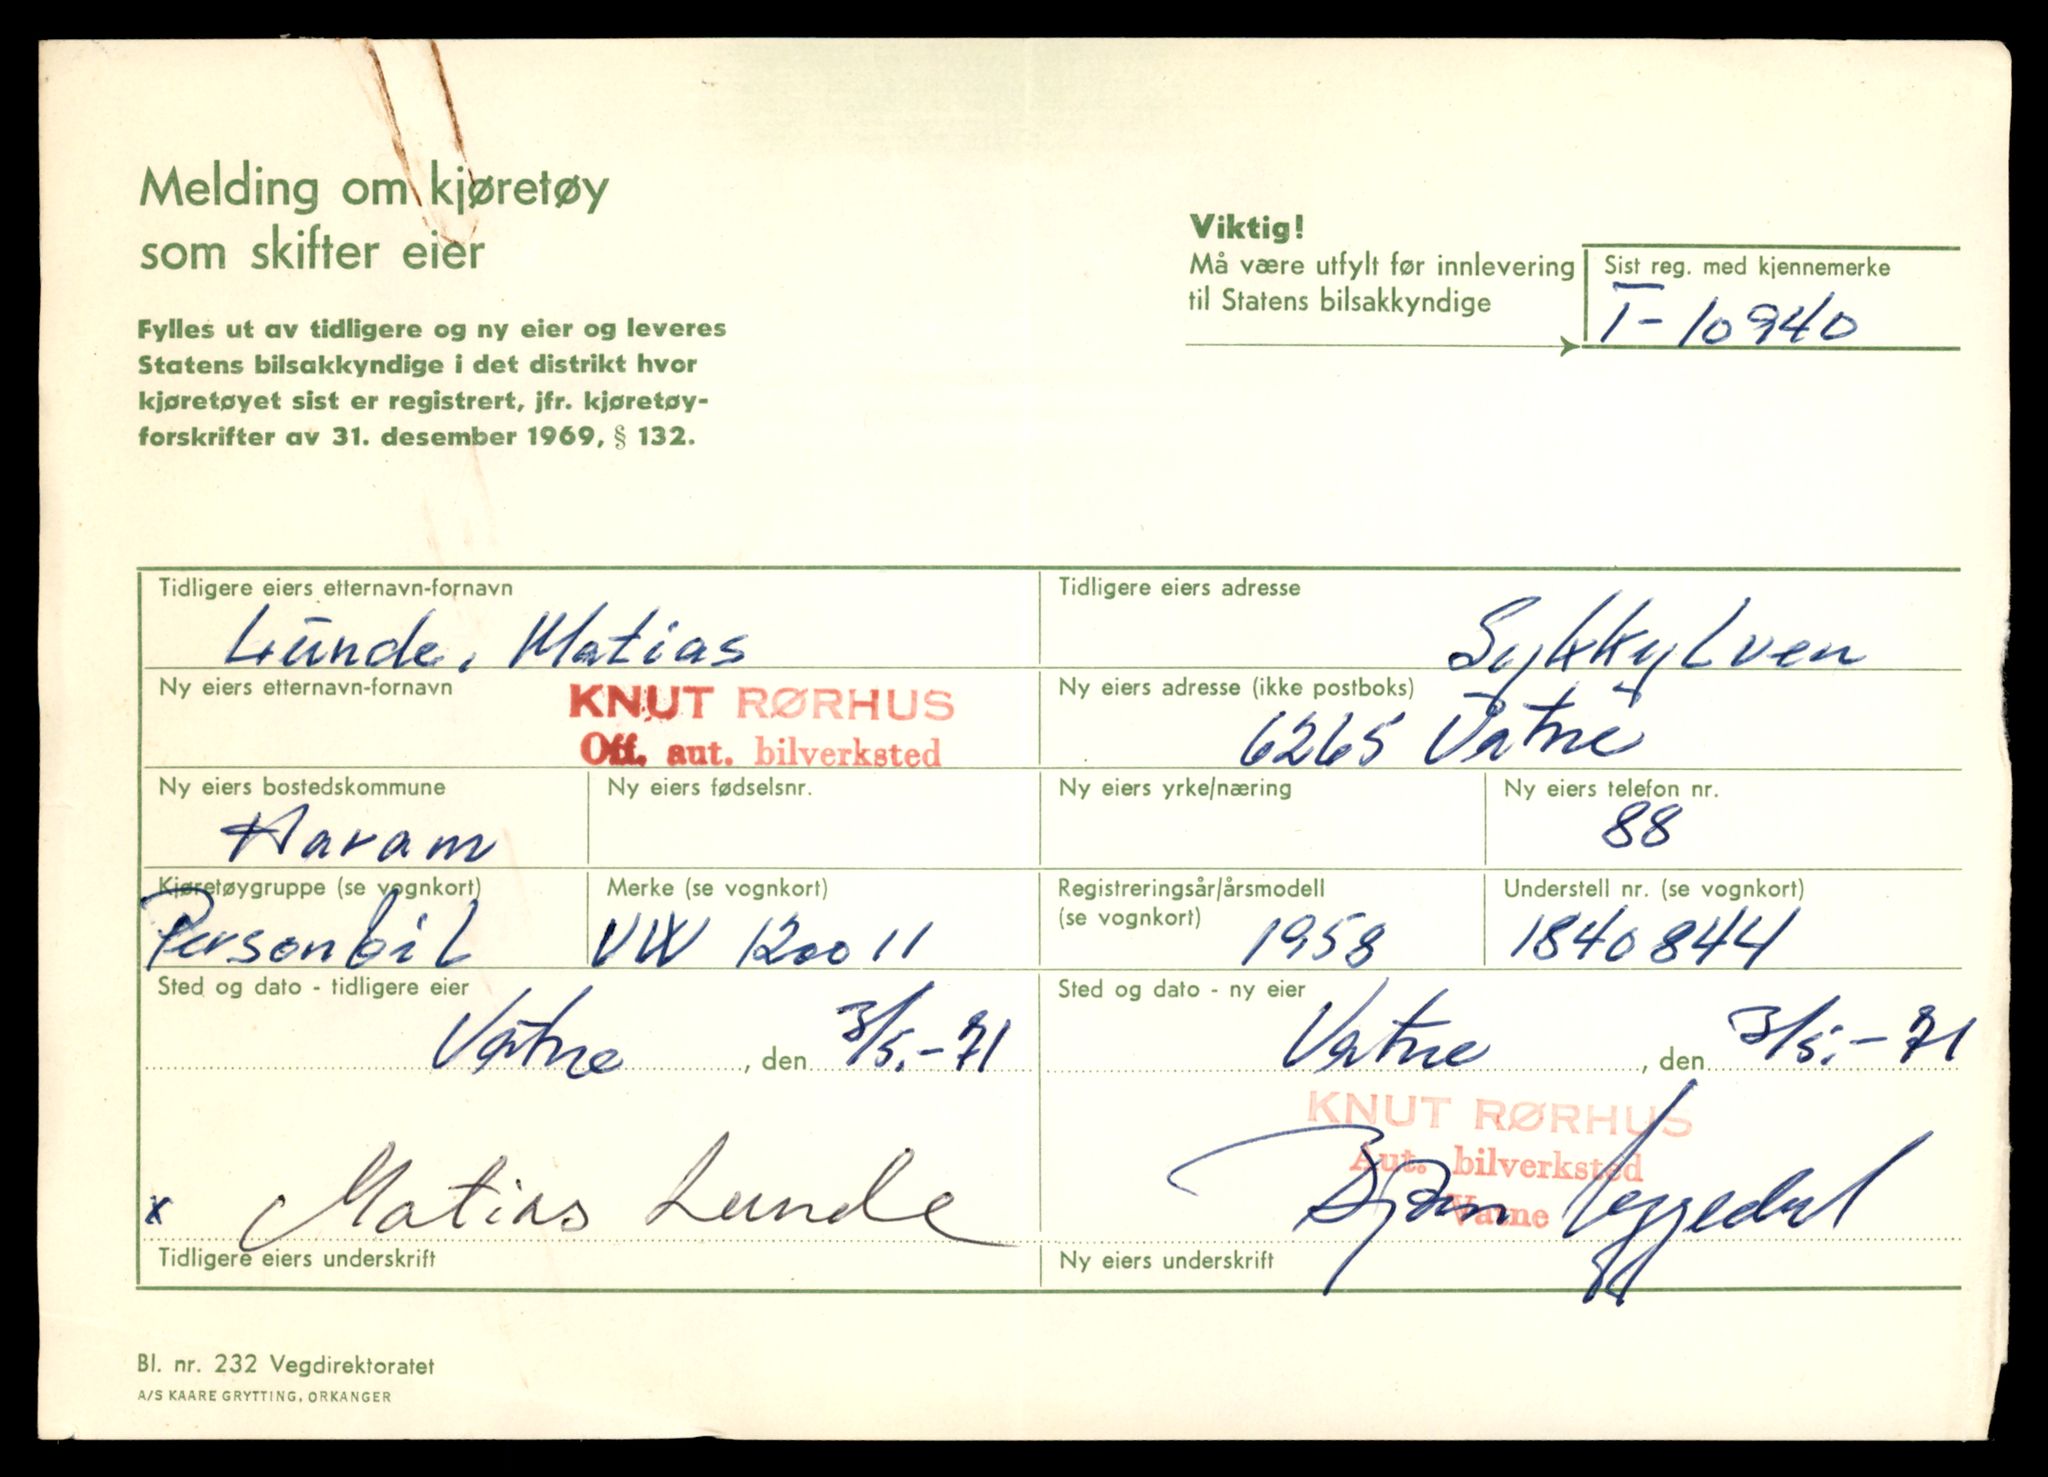 Melding om kjøretøy
som skifter eier
Fylles ut av tidligere og ny eier og leveres
Statens bilsakkyndige i det distrikt hvor
kjøretøyet sist er registrert, jfr. kjøretøy-
forskrifter av 31. desember 1969, § 132.
Viktig!
Må være utfylt før innlevering
til Statens bilsakkyndige
Sist reg. med kjennemerke
T-10940
Tidligere eiers etternavn-fornavn
Lunde, Matias
Tidligere eiers adresse
Sykkylven
Ny eiers etternavn-fornavn
KNUT RØRHUS
Off. aut. bilverksted
Ny eiers adresse (ikke postboks)
6265 Vatne
Ny eiers bostedskommune
Haram
Ny eiers fødselsnr.
Ny eiers yrke/næring
Ny eiers telefon nr.
88
Kjøretøygruppe (se vognkort)
Personbil
Merke (se vognkort)
VW 1200 11
Registreringsår/årsmodell
(se vognkort)
1958
Understell nr. (se vognkort)
1840844
Sted og dato - tidligere eier
Vatne, den 3/5.-71
Sted og dato - ny eier
Vatne, den 3/5.-71
KNUT RØRHUS
Aut. bilverksted
Vatne
x Matias Lunde
Bjørn
Tidligere eiers underskrift
Ny eiers underskrift
Bl. nr. 232 Vegdirektoratet
A/S KAARE GRYTTING, ORKANGER